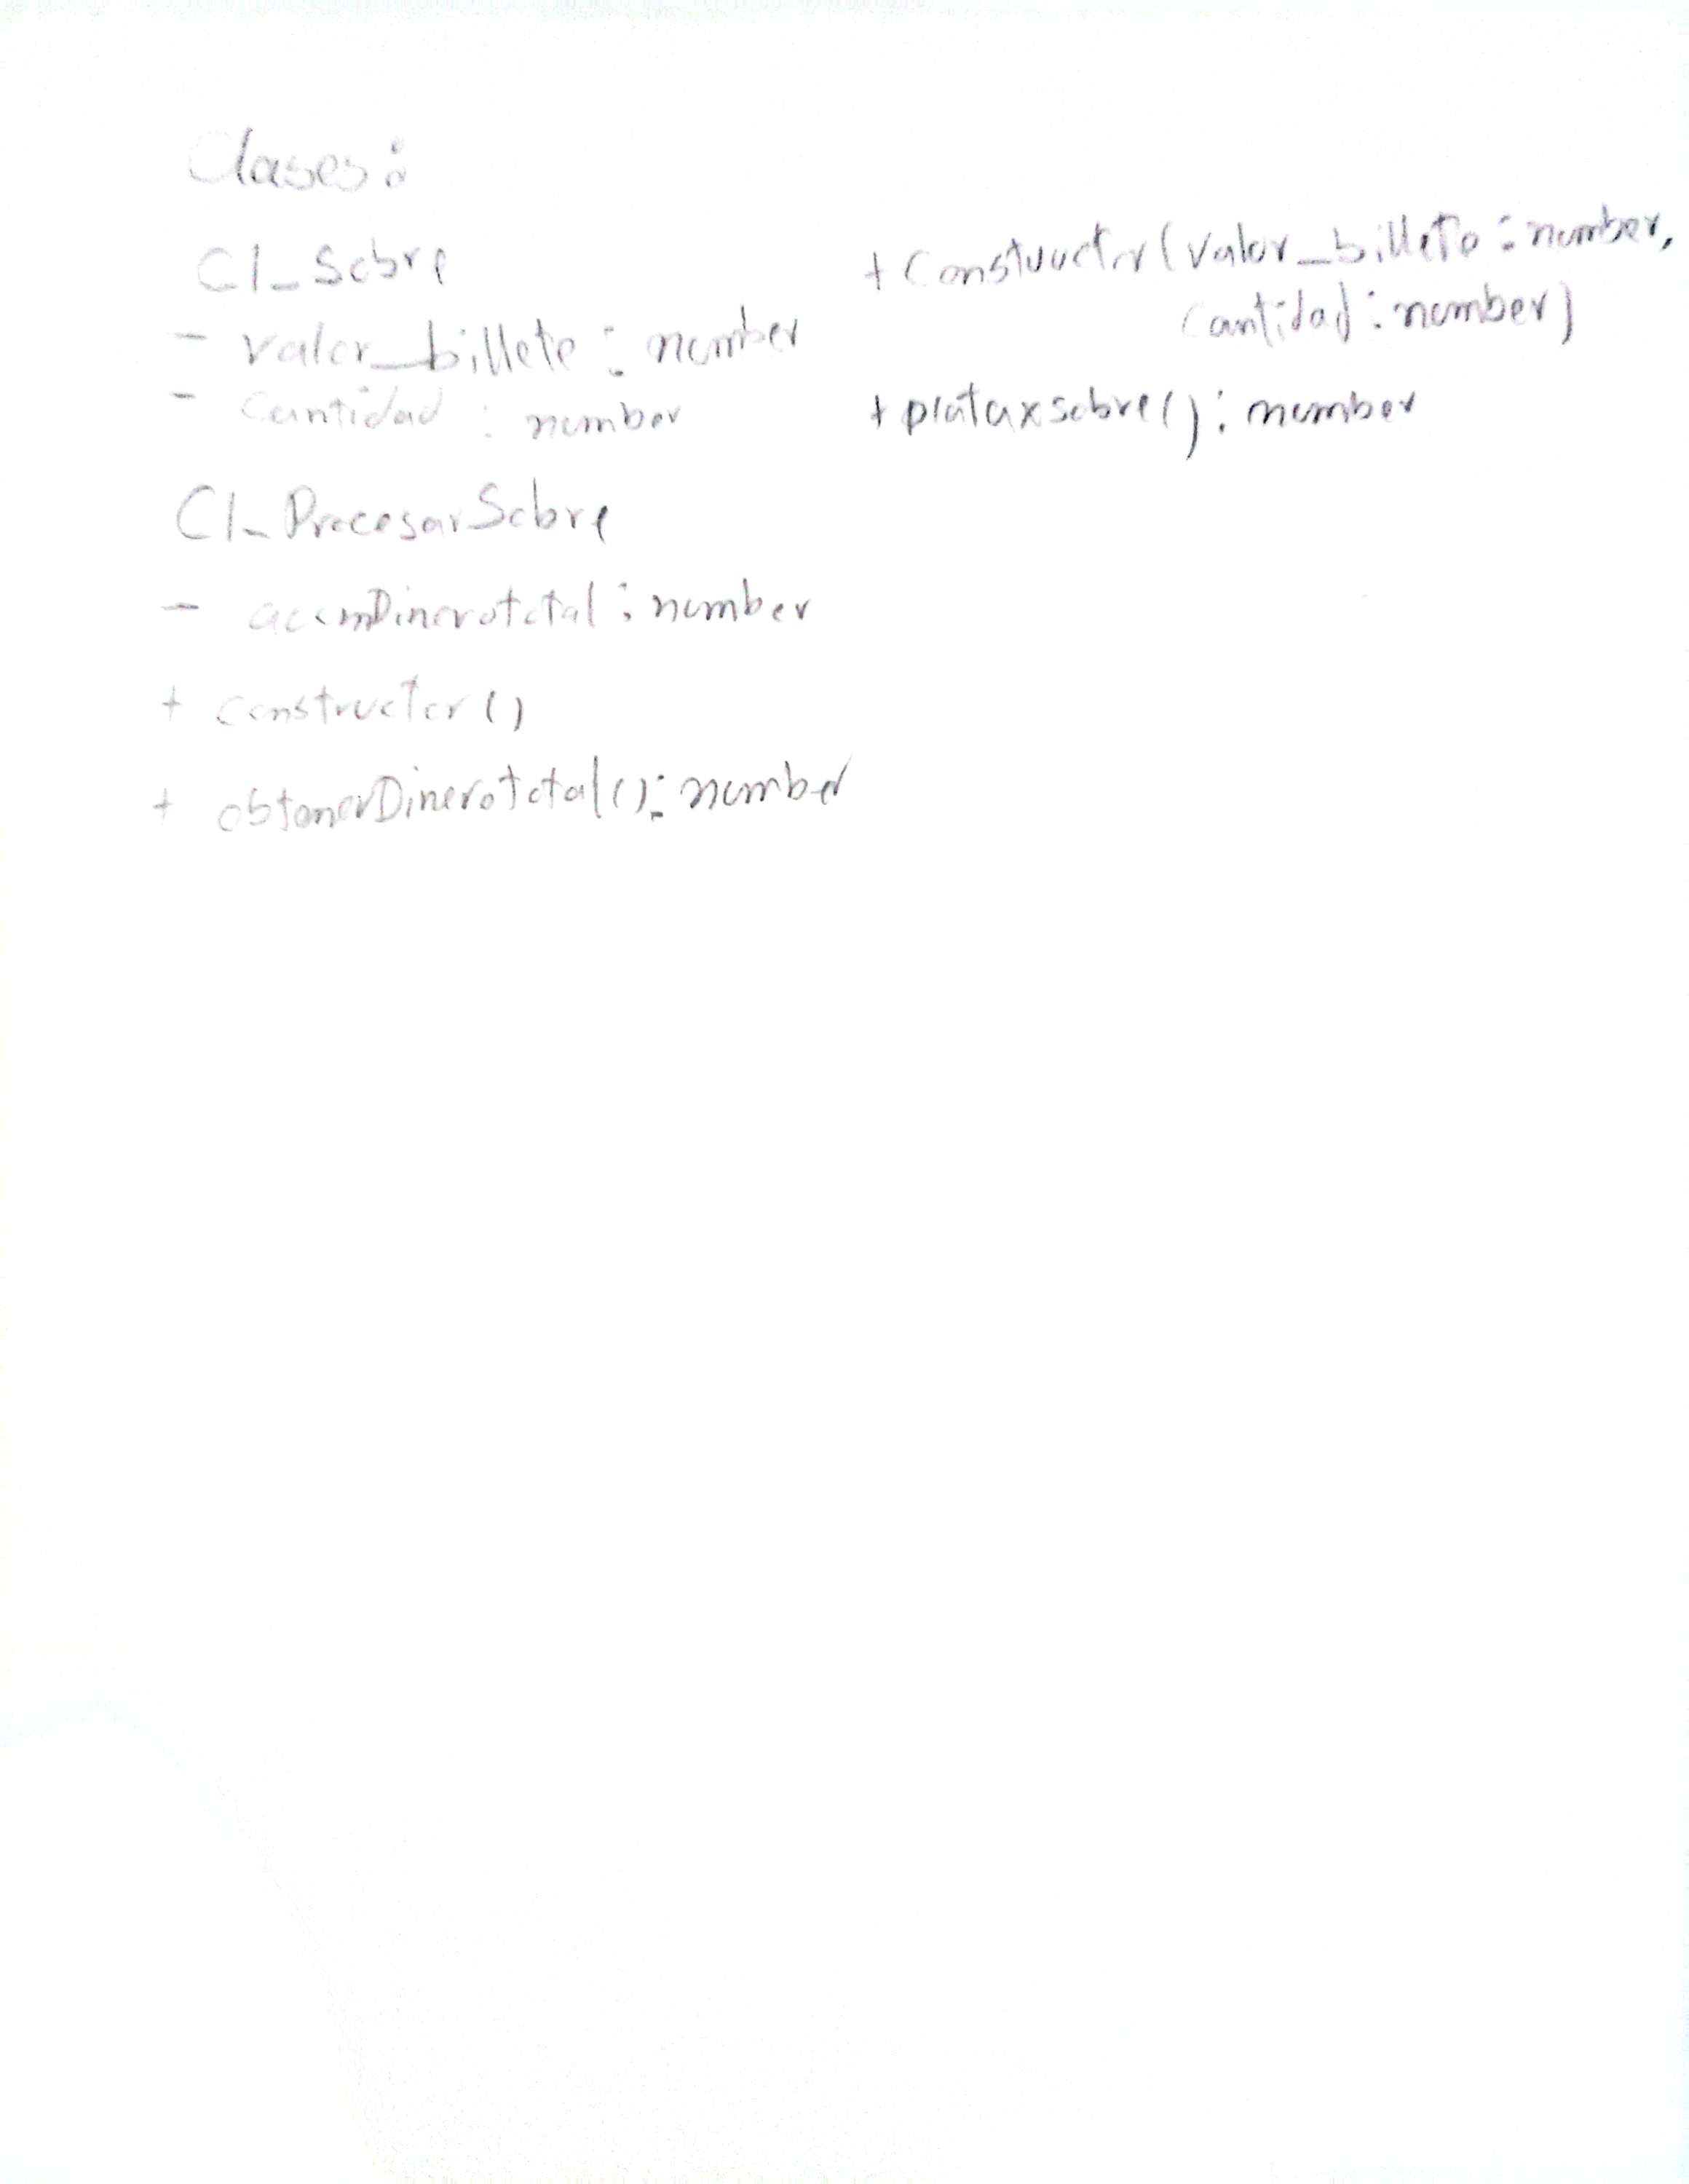 Clases:
Cl_Sobre
- valor_billete : number
- cantidad : number
+ Constuuctor(valor_billete : number,
cantidad : number)
+ plataxsobre() : number
Cl_ProcesarSobre
- acumDinerototal : number
+ constructor()
+ obtenerDinerototal() : number